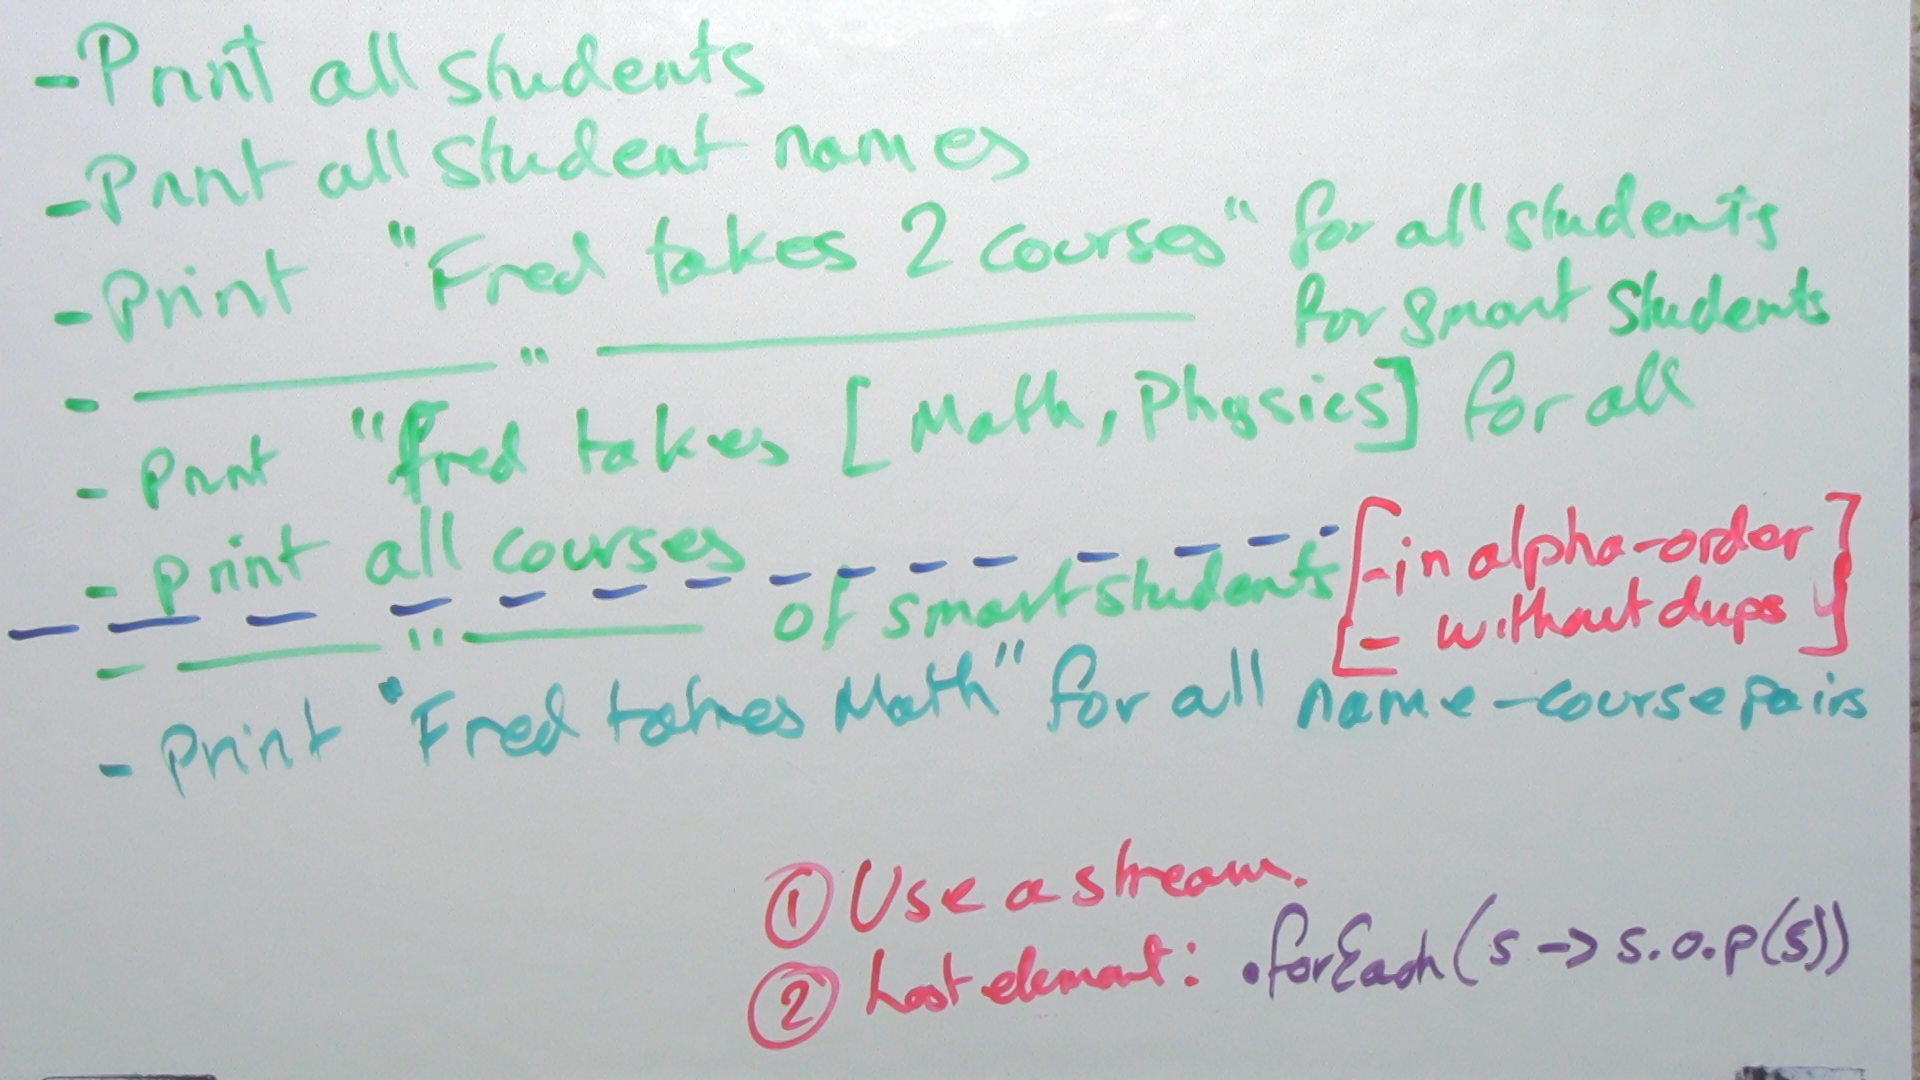 - Print all students
- Print all student names
- Print "Fred takes 2 courses" for all students
- ——— " ——— for smart students
- Print "Fred takes [Math, Physics] for all
- Print all courses
- ——— " ——— of smart students [- in alpha-order
- without dups]
- Print "Fred takes Math" for all name-course pairs
① Use a stream.
② Last element: .forEach(s -> s.o.p(s))